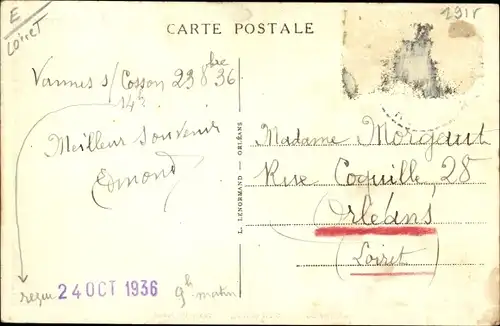 E
Loiret
CARTE POSTALE
Vannes s/ Cosson 23 8bre 36
14h
Meilleur souvenir
Edmond
reçu 24 OCT 1936 9h matin
L. LENORMAND — ORLÉANS
Madame Morgaut
Rue Coquille, 28
Orléans
(Loiret)